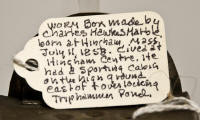 Worm Box made by
Charles Hawkes Harold
born at Hingham, Mass
July 11, 1858. Lived at
Hingham Centre. He
had a sporting cabin
on the high ground
east of & overlooking
Triphammer Pond.